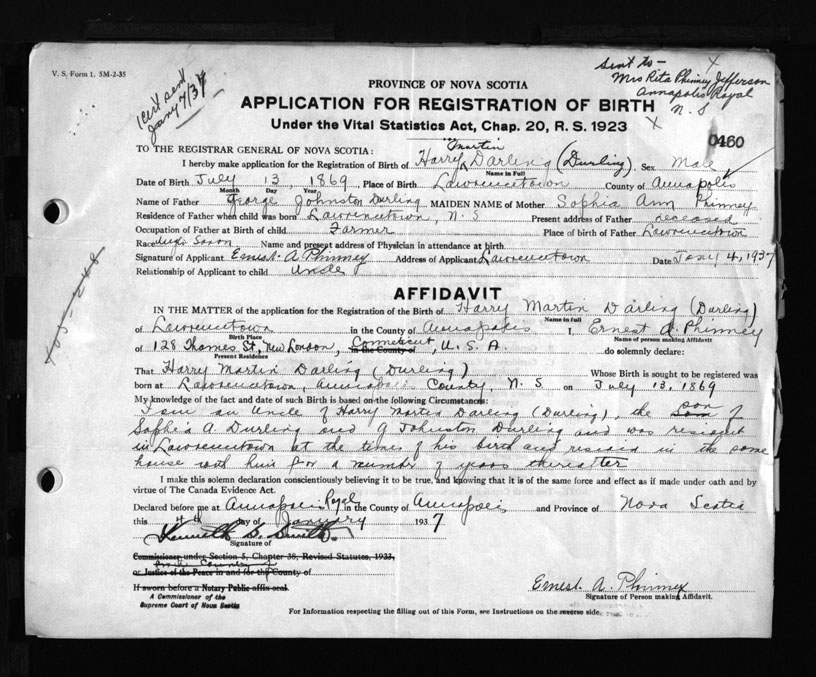 V. S. Form 1. 5M-2-35
Cert sent
Jany 7/37
Sent to -
Mrs Rita Phinney Jefferson
Annapolis Royal
N. S
PROVINCE OF NOVA SCOTIA
APPLICATION FOR REGISTRATION OF BIRTH
Under the Vital Statistics Act, Chap. 20, R. S. 1923
0460
TO THE REGISTRAR GENERAL OF NOVA SCOTIA:
Martin
I hereby make application for the Registration of Birth of Harry Darling (Durling). Sex Male
Name in Full
Date of Birth July 13, 1869 Place of Birth Lawrencetown County of Annapolis
Month Day Year
Name of Father George Johnston Durling MAIDEN NAME of Mother Sophia Ann Phinney
Residence of Father when child was born Lawrencetown, N. S Present address of Father deceased
Occupation of Father at Birth of child Farmer Place of birth of Father Lawrencetown
Race Saxon Name and present address of Physician in attendance at birth
Signature of Applicant Ernest A Phinney Address of Applicant Lawrencetown Date Jany 4, 1937
Relationship of Applicant to child Uncle
AFFIDAVIT
IN THE MATTER of the application for the Registration of the Birth of Harry Martin Darling (Durling)
Name in full
of Lawrencetown in the County of Annapolis I, Ernest A. Phinney
Birth Place Name of person making Affidavit
of 128 Thames St, New London, Connecticut, in the County of U. S. A. do solemnly declare:
Present Residence
That Harry Martin Darling (Durling) Whose Birth is sought to be registered was
born at Lawrencetown, Annapolis County, N. S on July 13, 1869
My knowledge of the fact and date of such Birth is based on the following Circumstances:
I am an Uncle of Harry Martin Darling (Durling), the son of
Sophia A. Durling and G Johnston Durling and was resident
in Lawrencetown at the time of his birth and resided in the same
house with him for a number of years thereafter
I make this solemn declaration conscientiously believing it to be true, and knowing that it is of the same force and effect as if made under oath and by
virtue of The Canada Evidence Act.
Declared before me at Annapolis Royal in the County of Annapolis and Province of Nova Scotia
this 4th day of January 1937
Kenneth Smith
Signature of
Commissioner under Section 5, Chapter 38, Revised Statutes, 1923,
or Justice of the Peace in and for the County of
If sworn before a Notary Public affix seal.
A Commissioner of the
Supreme Court of Nova Scotia
Ernest A. Phinney
Signature of Person making Affidavit.
For Information respecting the filling out of this Form, see Instructions on the reverse side.